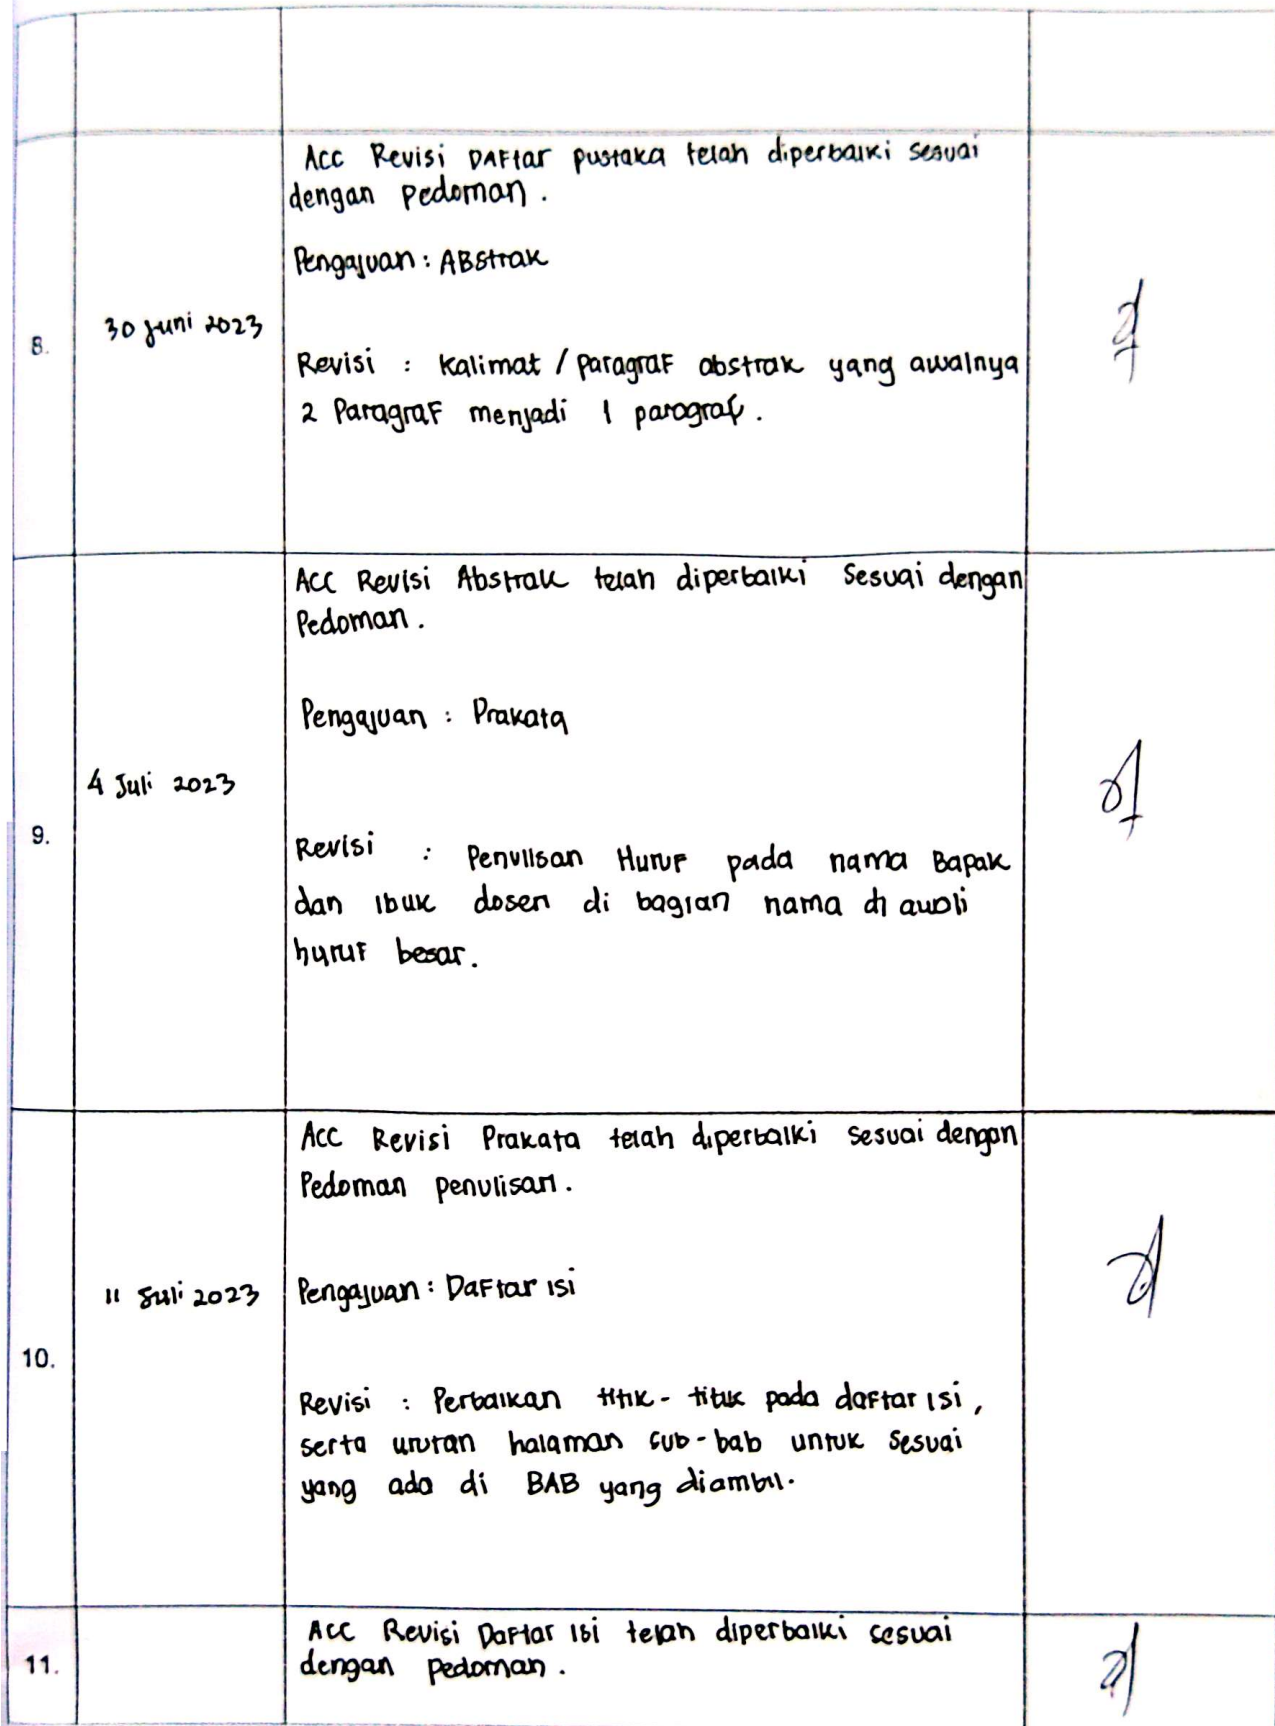 Acc Revisi Daftar pustaka telah diperbaiki sesuai
dengan pedoman.
Pengajuan : Abstrak
8.
30 Juni 2023
Revisi : Kalimat / paragraf abstrak yang awalnya
2 Paragraf menjadi 1 paragraf.
Acc Revisi Abstrak telah diperbaiki Sesuai dengan
Pedoman.
Pengajuan : Prakata
4 Juli 2023
9.
Revisi : Penulisan Huruf pada nama Bapak
dan Ibuk dosen di bagian nama di awali
huruf besar.
Acc Revisi Prakata telah diperbaiki Sesuai dengan
Pedoman penulisan.
11 Juli 2023
Pengajuan : Daftar isi
10.
Revisi : Perbaikan titik-titik pada daftar isi,
serta urutan halaman sub-bab untuk sesuai
yang ada di BAB yang diambil.
11.
Acc Revisi Daftar isi telah diperbaiki sesuai
dengan pedoman.